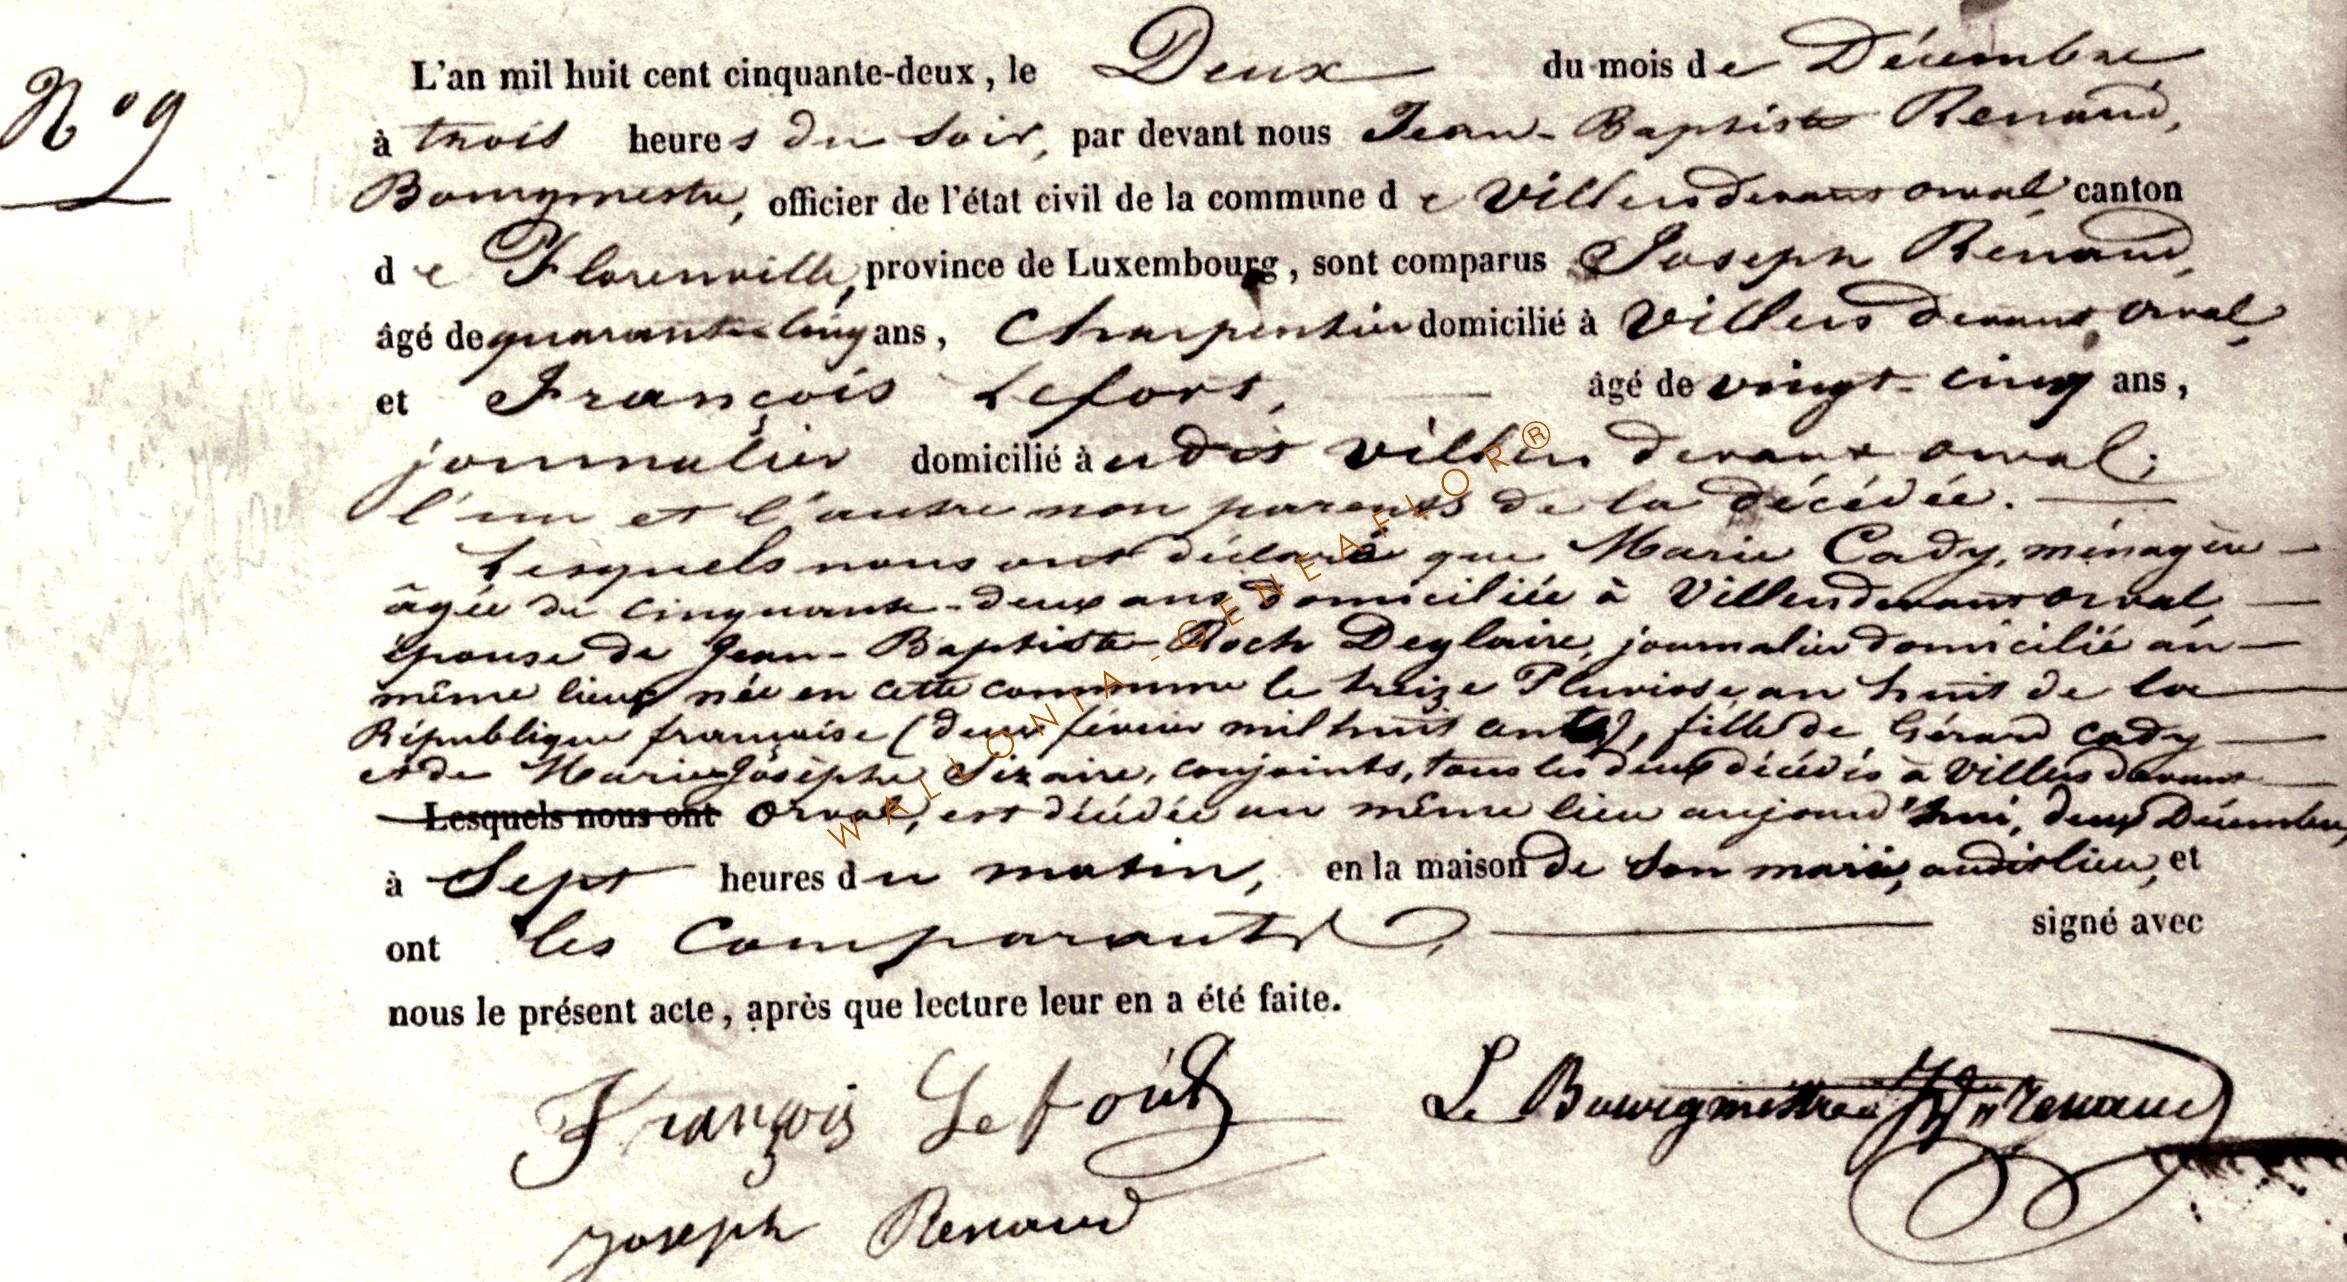 N° 9
L'an mil huit cent cinquante-deux, le Deux du mois de Décembre
à trois heures du soir, par devant nous Jean-Baptiste Renaud,
Bourgmestre, officier de l'état civil de la commune de Villers devant orval canton
de Florenville, province de Luxembourg, sont comparus Joseph Renaud,
âgé de quarante cinq ans, Charpentier domicilié à Villers devant Orval,
et François Lefort, âgé de vingt-cinq ans,
journalier domicilié àudit Villers devant orval;
l'un et l'autre non parents de la décédée.
Lesquels nous ont déclaré que Marie Cady, ménagère
âgée de cinquante-deux ans domiciliée à Villers devant orval
épouse de Jean-Baptiste Roch Deglaire, journalier domicilié au
même lieu, née en cette commune le treize Pluviose an huit de la
République française (deux février mil huit cent), fille de Gérard Cady
et de Marie Josèphe Sizaire, conjoints, tous les deux décédés à Villers devant
Lesquels nous ont Orval, est décédée au même lieu aujourd'hui, deux Décembre,
à Sept heures du matin, en la maison de son mari, audit lieu, et
ont les Comparants, signé avec
nous le présent acte, après que lecture leur en a été faite.
François Lefort Le Bourgmestre Renaud
Joseph Renaud
WALLONIA-GENEAFLOR®